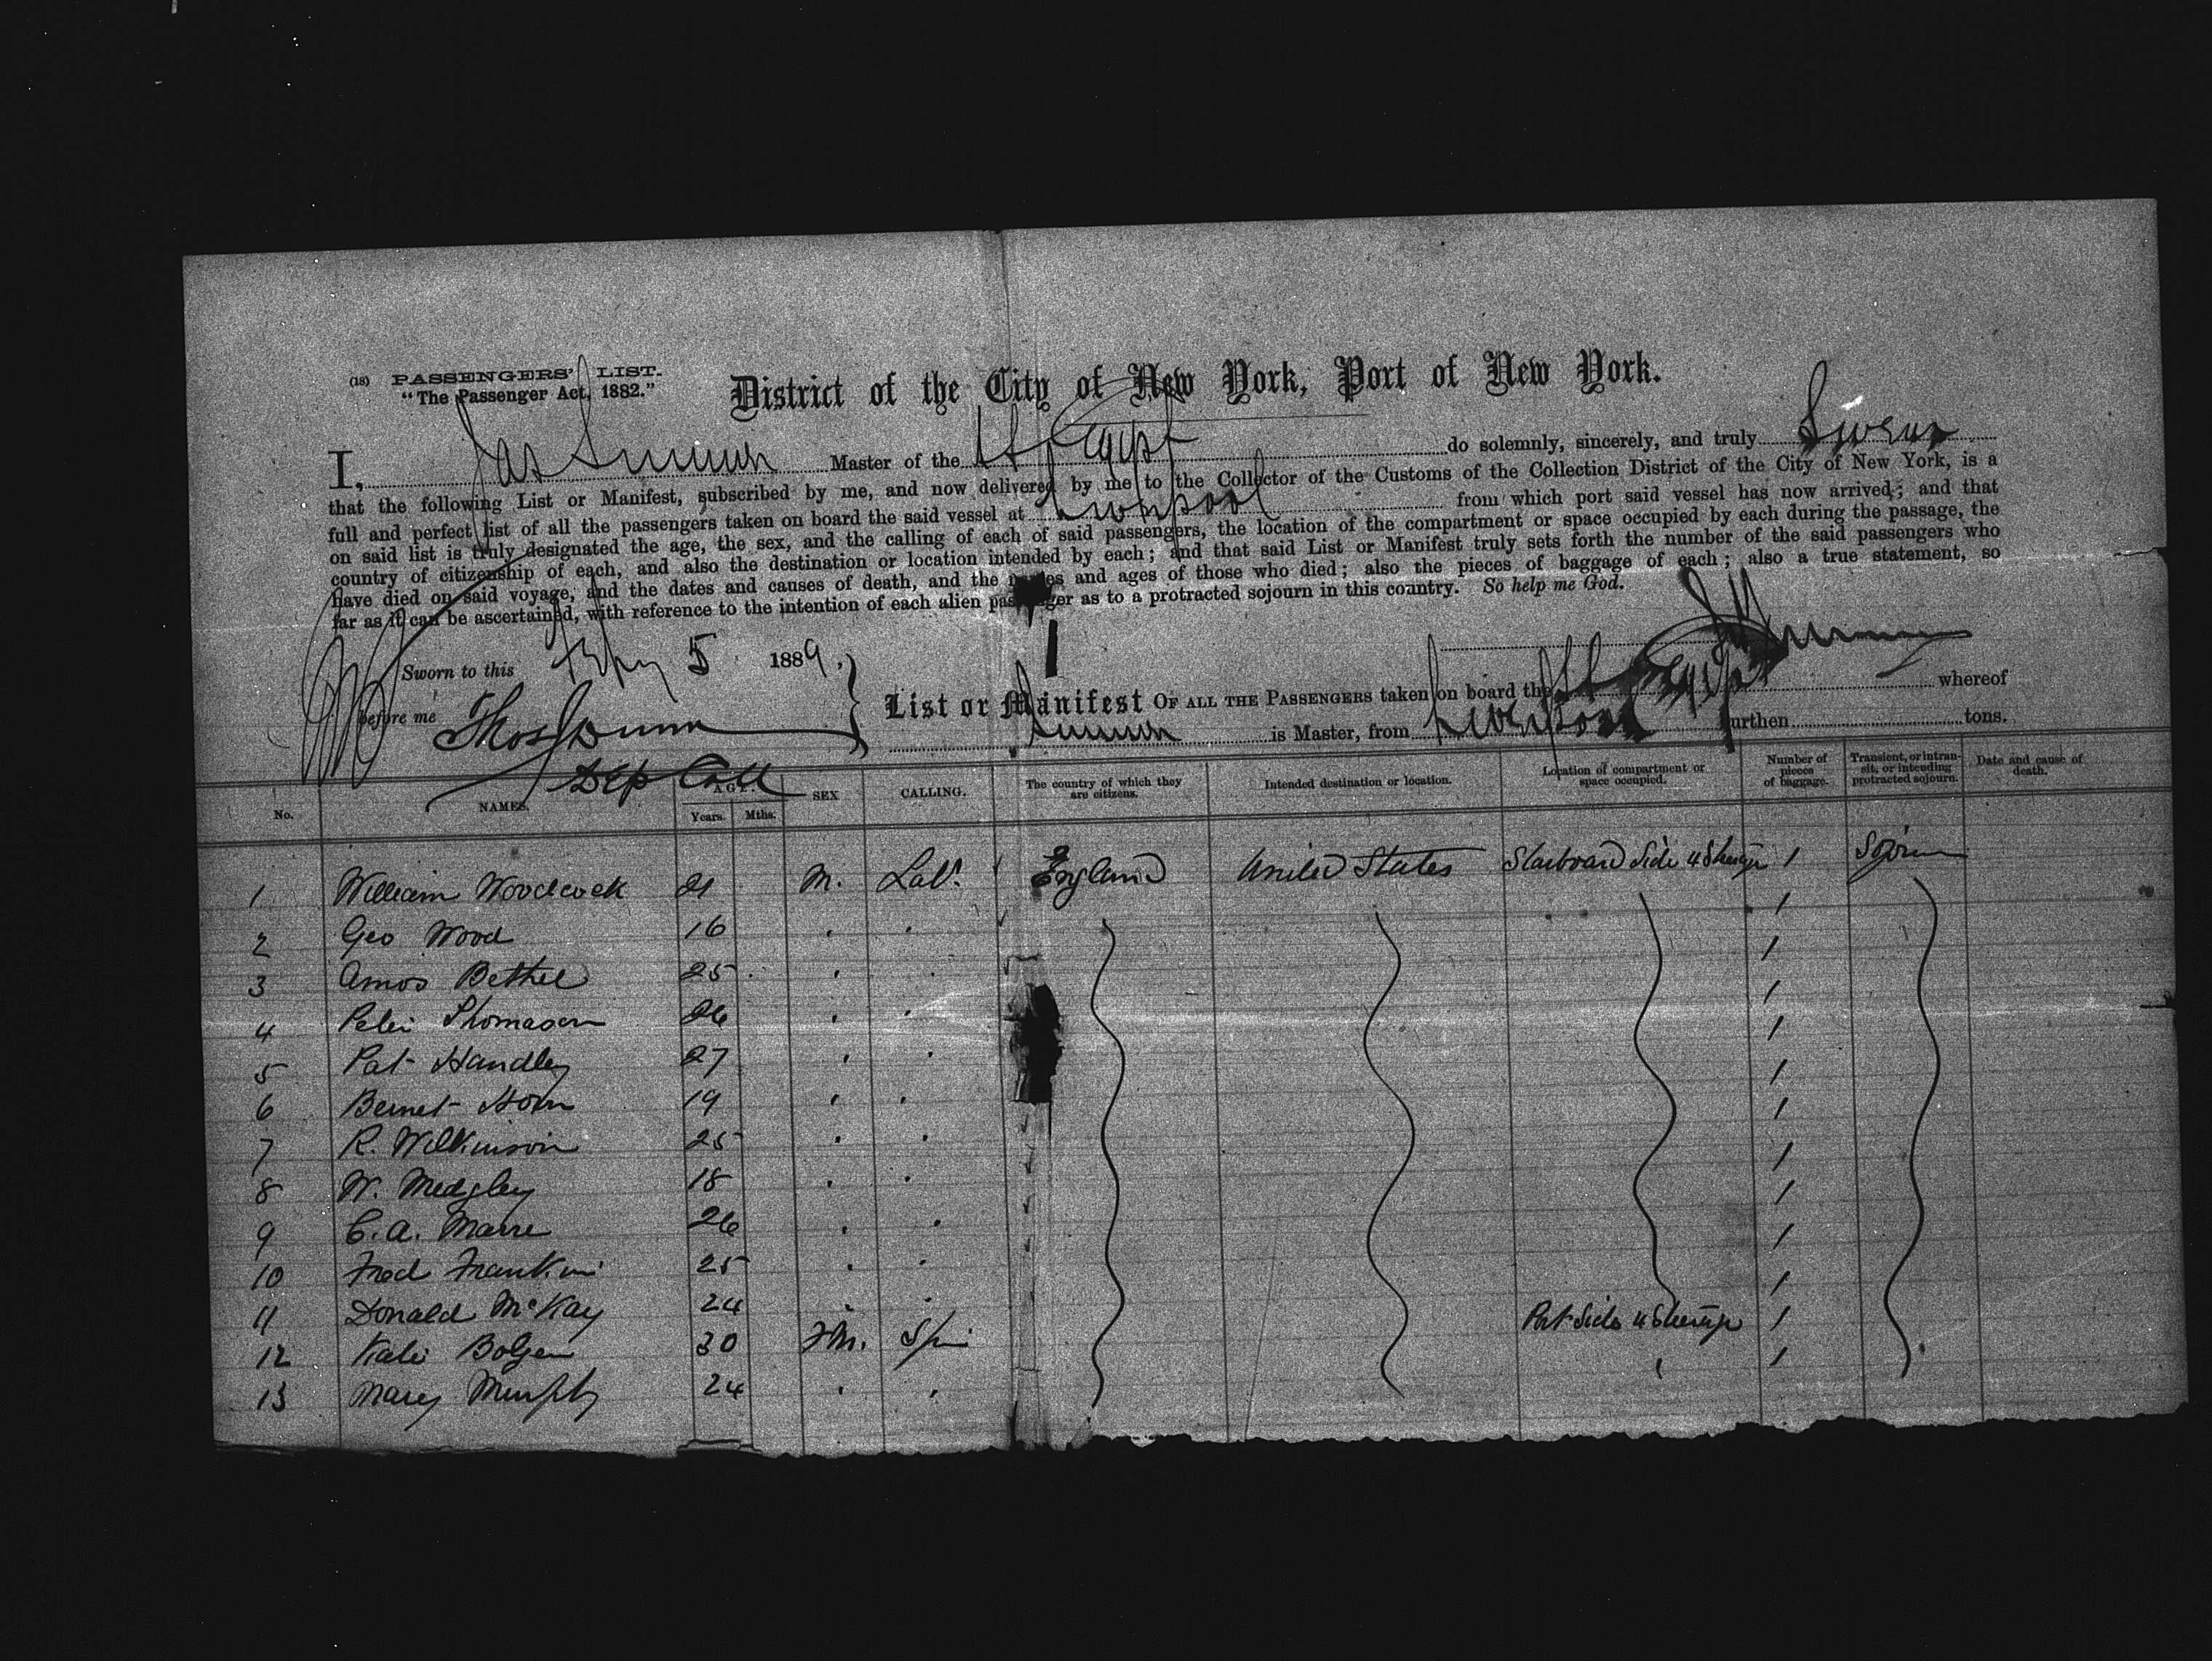 (18) PASSENGERS' LIST.
"The Passenger Act, 1882."
District of the City of New York, Port of New York.
I, Jas Sumner Master of the SS Egypt do solemnly, sincerely, and truly Swear
that the following List or Manifest, subscribed by me, and now delivered by me to the Collector of the Customs of the Collection District of the City of New York, is a
full and perfect list of all the passengers taken on board the said vessel at Liverpool from which port said vessel has now arrived; and that
on said list is truly designated the age, the sex, and the calling of each of said passengers, the location of the compartment or space occupied by each during the passage, the
country of citizenship of each, and also the destination or location intended by each; and that said List or Manifest truly sets forth the number of the said passengers who
have died on said voyage, and the dates and causes of death, and the names and ages of those who died; also the pieces of baggage of each; also a true statement, so
far as it can be ascertained, with reference to the intention of each alien passenger as to a protracted sojourn in this country. So help me God.
Sworn to this 5 1889.
before me Thos Dunn
Dep Coll
List or Manifest OF ALL THE PASSENGERS taken on board the SS Egypt whereof
Sumner is Master, from Liverpool burthen tons.
No. NAMES. AGE. Years. Mths. SEX CALLING. The country of which they are citizens. Intended destination or location. Location of compartment or space occupied. Number of pieces of baggage. Transient, or intransit, or intending protracted sojourn. Date and cause of death.
1 William Woodcock 21 M. Lab. England United States Starboard Side 1 Sojourn
2 Geo Wood 16 " " 1
3 Amos Bethel 25 " " 1
4 Peter Thomason 26 " " 1
5 Pat Handley 27 " " 1
6 Bernet Horn 19 " " 1
7 R. Wilkinson 25 " " 1
8 W. Medgley 18 " " 1
9 C. A. Marre 26 " " 1
10 Fred 25 " " 1
11 Donald McKay 24 " " 1
12 Kate Bolger 30 Fm. Spin Port Side 1
13 Mary Murphy 24 " " " 1